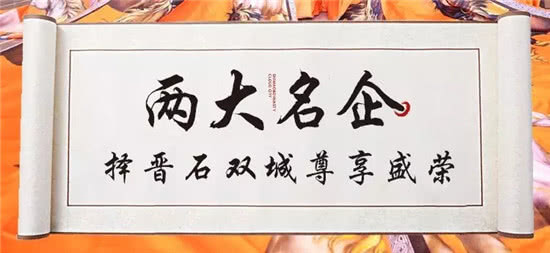 两大名企
择晋石双城尊享盛荣